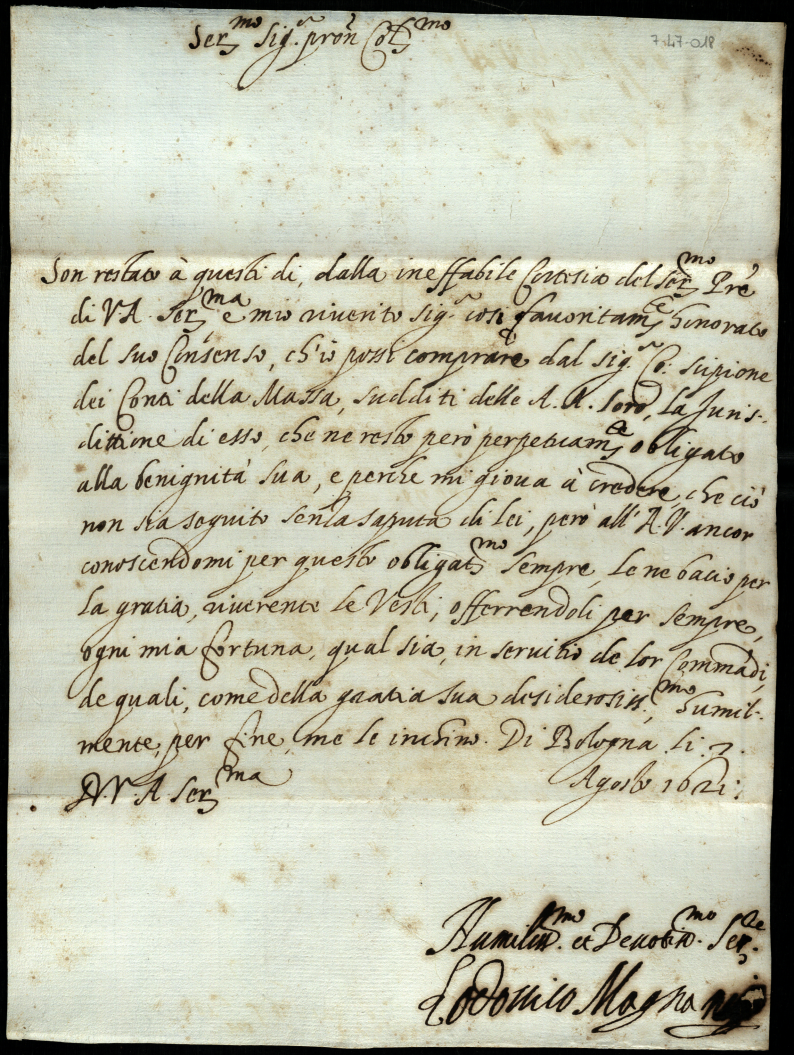 Ser.mo Sig.r pron Col.mo
7-47-018
Son restato à questi di, dalla ineffabile Cortesia del Ser.mo Prè
di V.A. Ser.ma e mio riverito Sig.r cosi favoritam.te honorato
del suo Consenso, ch'io possi comprare dal Sig.r Co: Scipione
dei Conti della Massa, sudditi delle A. A. loro, la Juris-
dittione di esso, che ne resto però perpetuam.te obligato
alla benignità sua, e perche mi giova à credere che ciò
non sia seguito senza saputa di lei, però all'A.V. ancor
conoscendomi per questo obligat.mo sempre, le ne bacio per
la gratia, riverente le Vesti, offerrendoli per sempre,
ogni mia fortuna, qual sia, in servitio de lor Commãdi,
de quali, come della gratia sua desiderosiss.mo, humil-
mente, per fine, me le inchino. Di Bologna li 2.
D.V.A. Ser.ma Agosto 1621.
Humiliss.mo et Devotiss.mo Ser.re
Lodovico Magnani